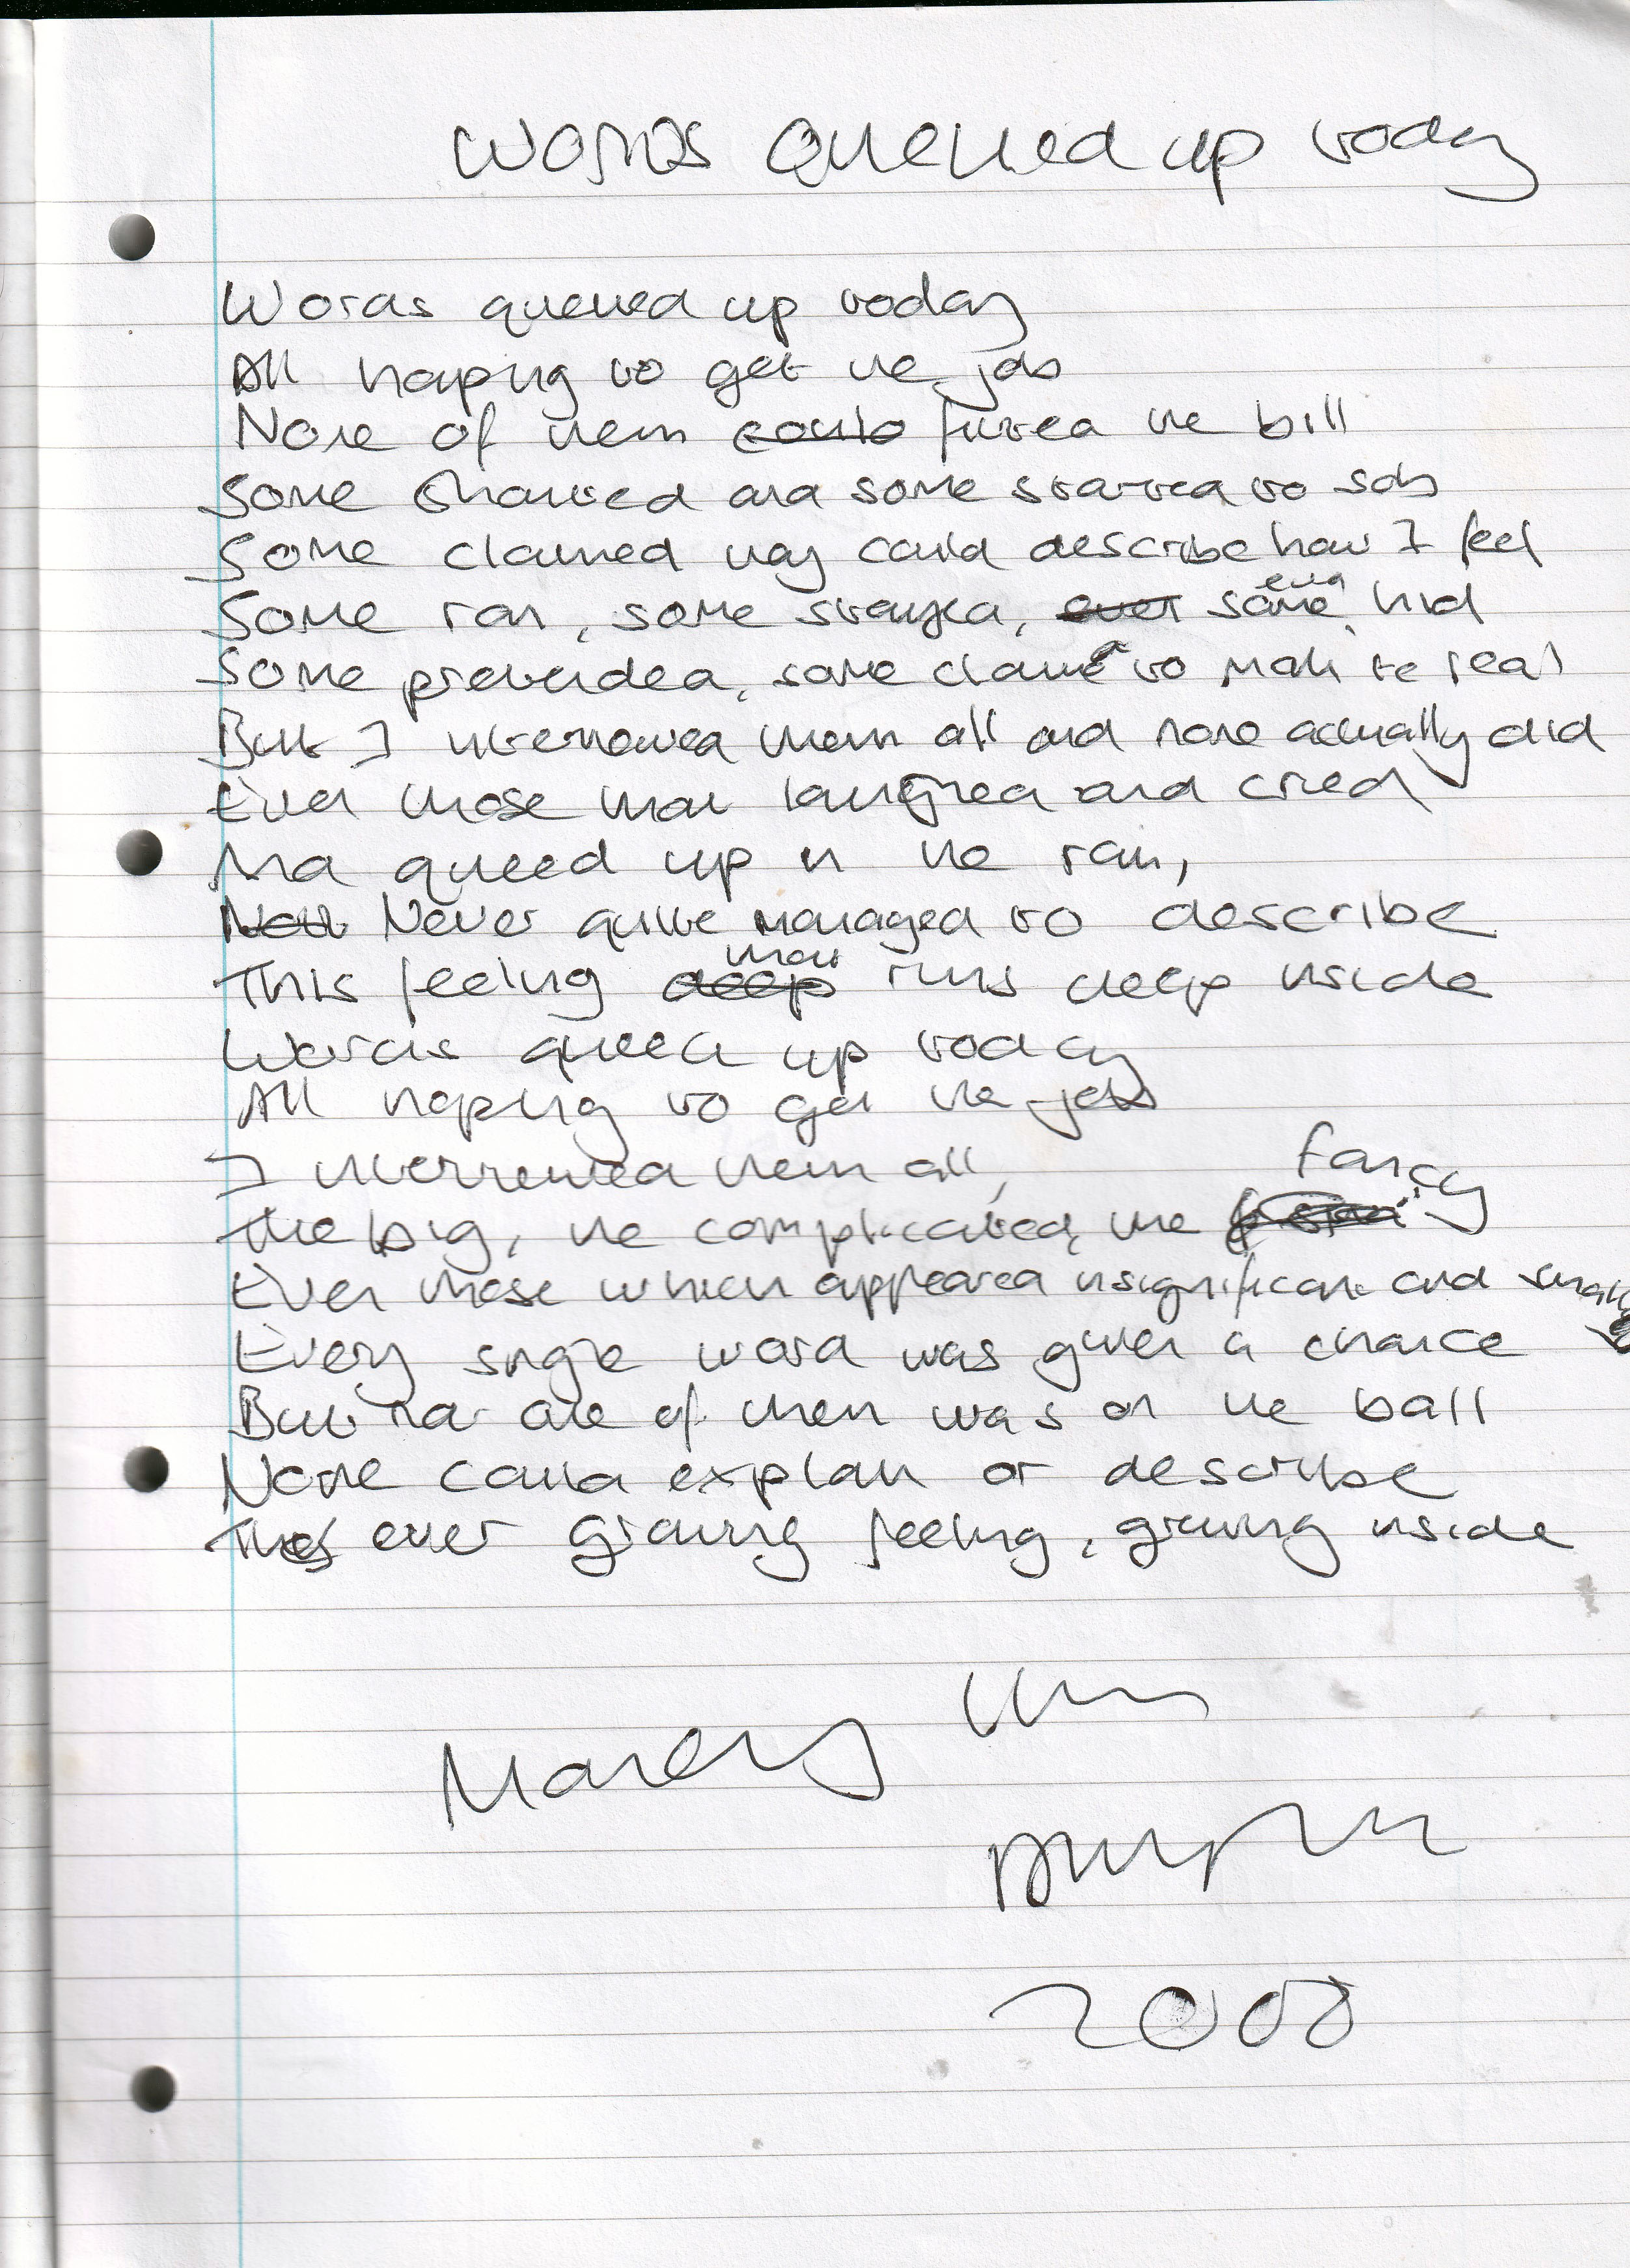 Words Queued up today
Words queued up today
All hoping to get the job
None of them could fitted the bill
Some shouted and some started to sob
Some claimed they could describe how I feel
Some ran, some stayed, even some even hid
Some pretended, some claimed to make it real
But I interviewed them all and none actually did
Even those that laughed and cried
And queed up in the rain,
Never quite managed to describe
This feeling deep that runs deep inside
Words queed up today
All hoping to get the job
I interviewed them all,
The big, the complicated, the fancy
Even those which appeared insignificant and small
Every single word was given a chance
But not one of them was on the ball
None could explain or describe
This ever growing feeling, growing inside
2000